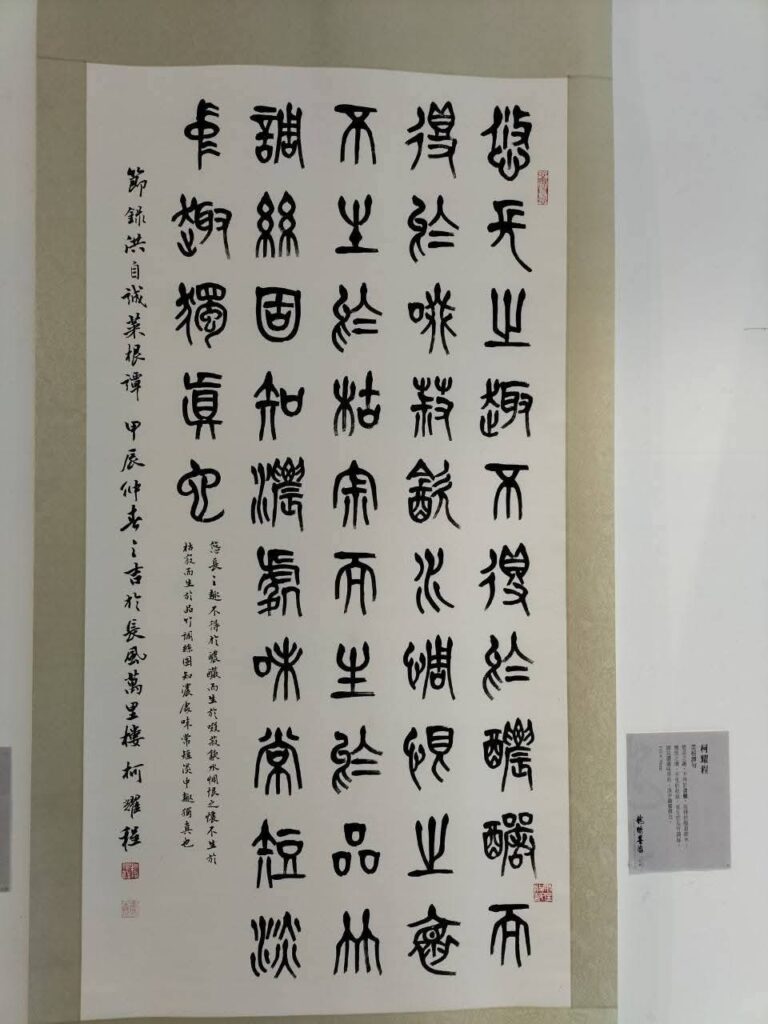 悠長之趣不得於醲釅而
得於啜菽飲水惆恨之懷
不生於枯寂而生於品竹
調絲固知濃處味常短淡
中趣獨眞也
悠長〻趣不得於醲釅而生於啜菽飲水惆恨之懷不生於
枯寂而生於品竹調絲固知濃處味常短淡中趣獨真也
節録洪自诚菜根譚 甲辰仲春之吉於長風萬里樓 柯耀程
柯耀程
菜根譚句